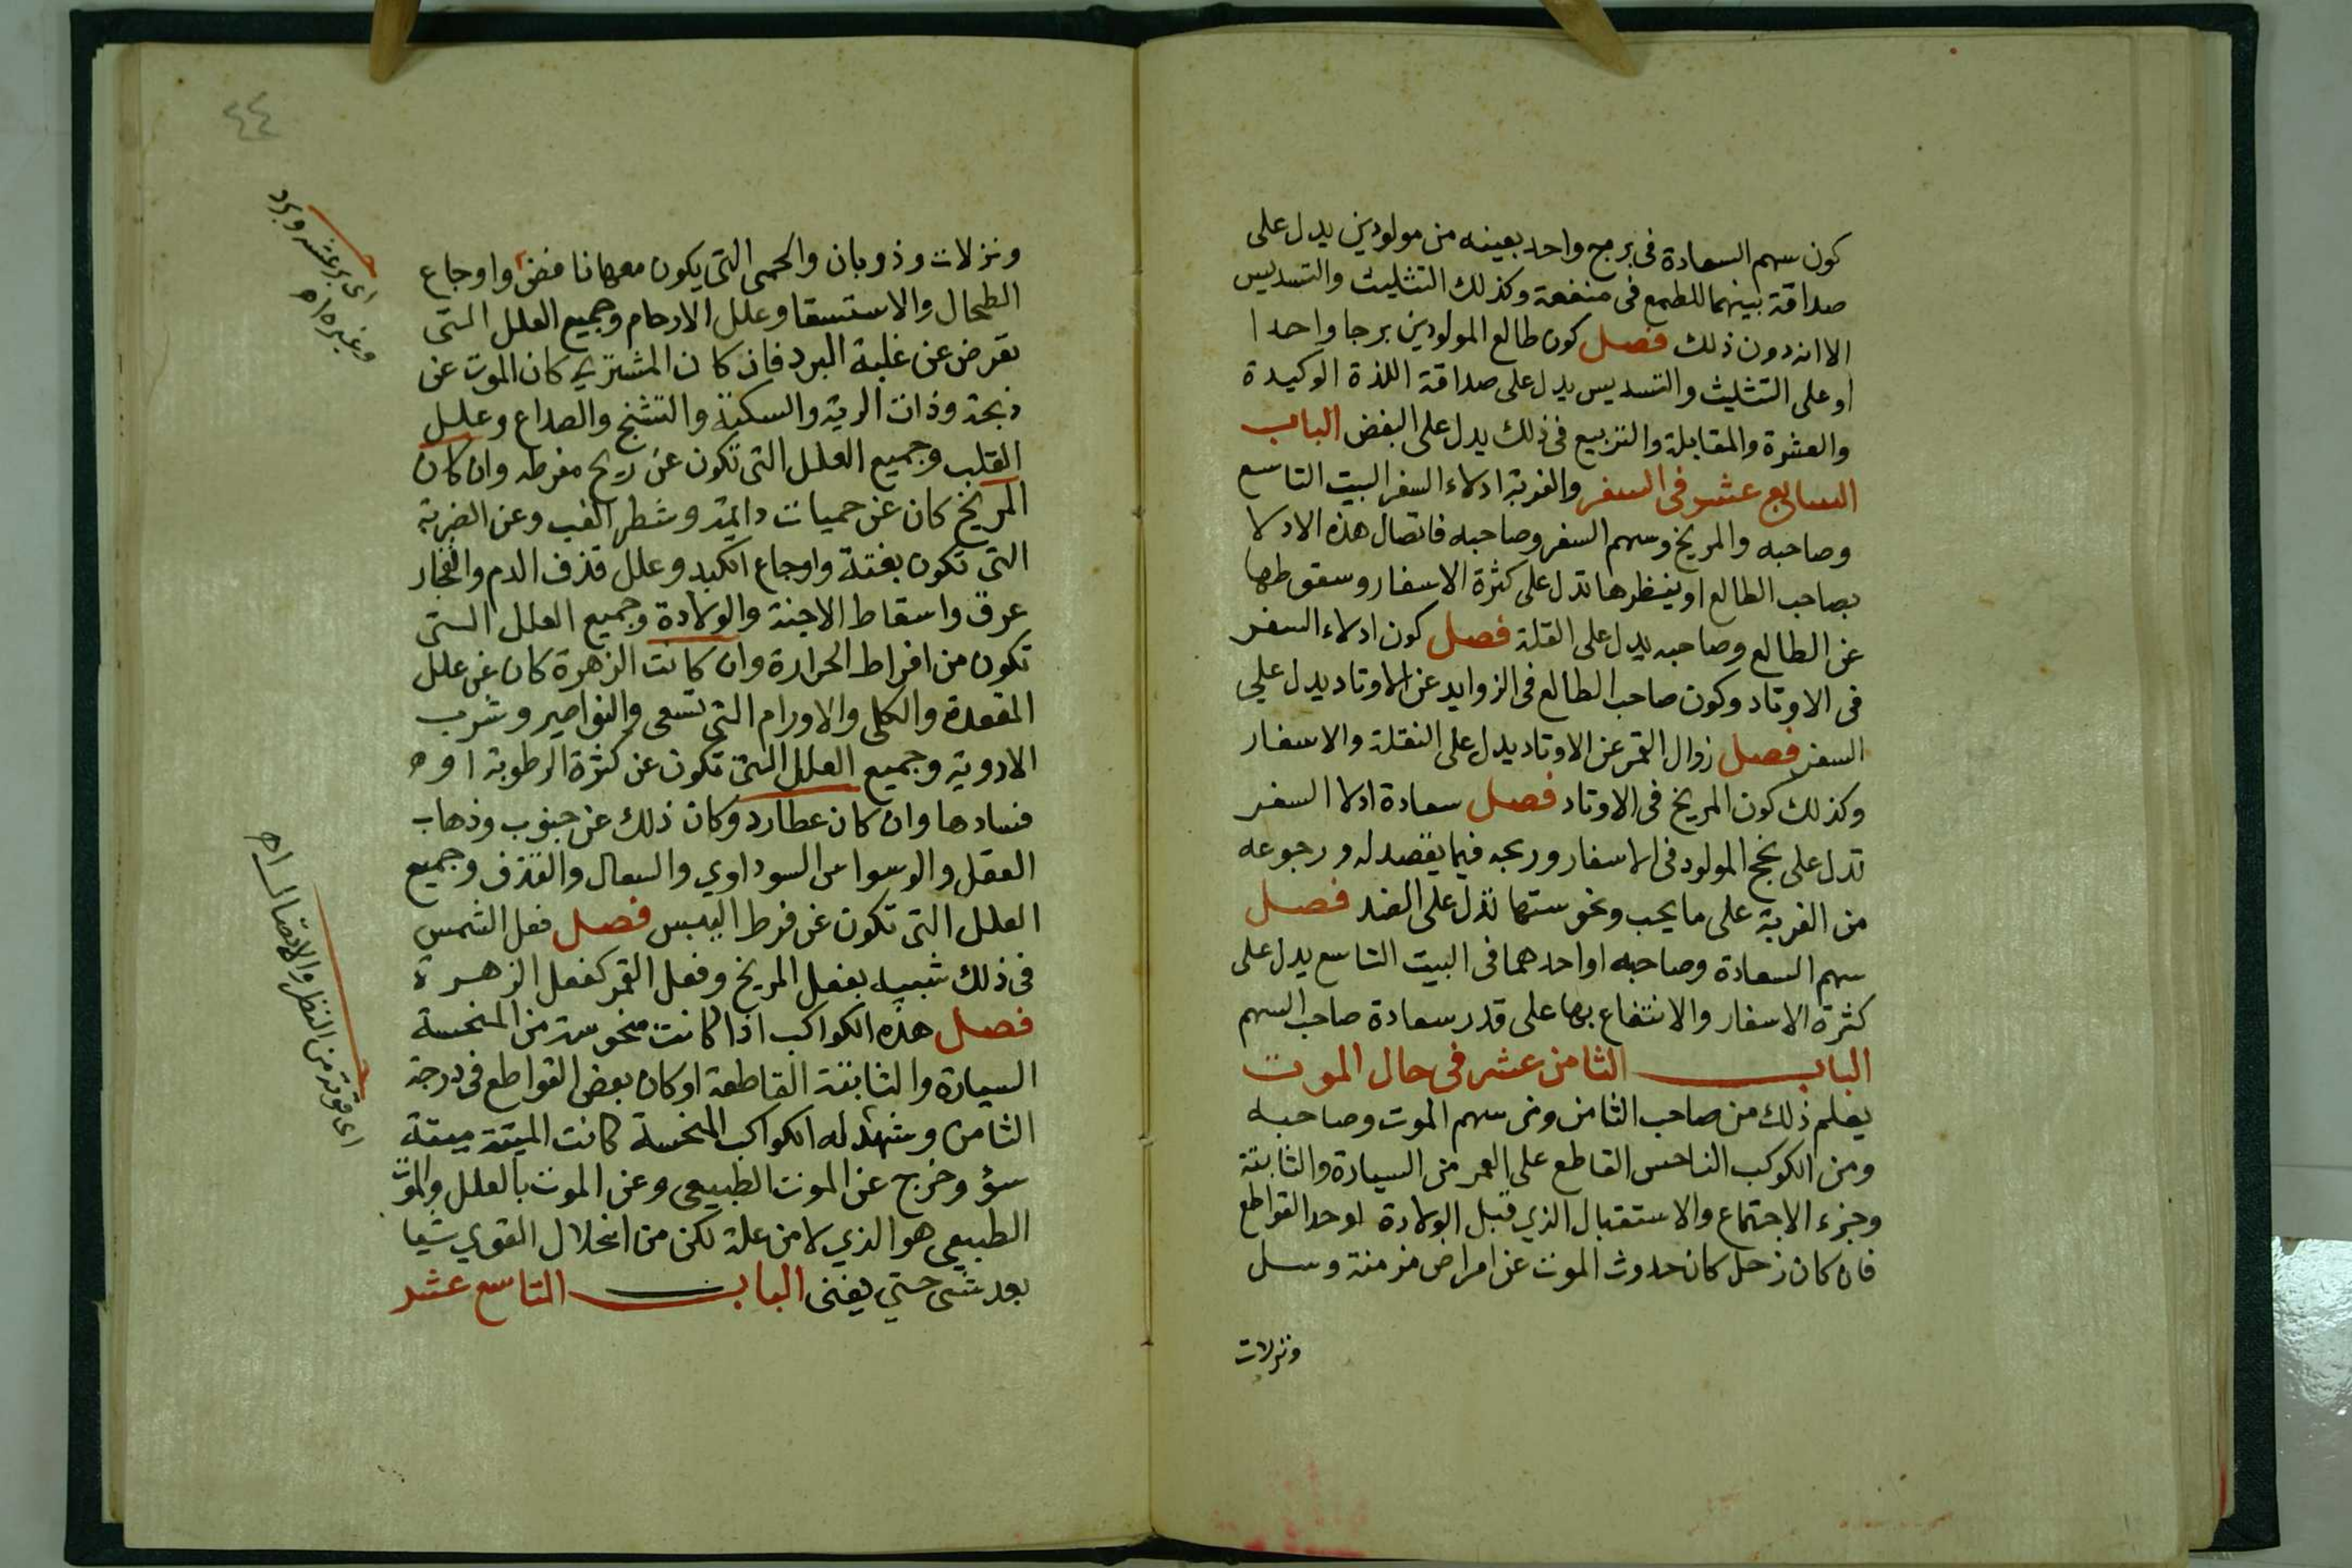 كون سهم السعادة فى برج واحد بعينه من مولودين يدل على
صداقة بينهما للطمع فى منفعة وكذلك التثليث والتسديس
الا انه دون ذلك فصل كون طالع المولودين برجا واحدا
او على التثليث والتسديس يدل على صداقة اللذة الوكيدة
والعشرة والمقابلة والتربيع فى ذلك يدل على البغض الباب
السابع عشر فى السفر والغربة ادلاء السفر البيت التاسع
وصاحبه والمريخ وسهم السفر وصاحبه فاتصال هذه الادلا
بصاحب الطالع او ينظرها تدل على كثرة الاسفار وسقوطها
عن الطالع وصاحبه يدل على القلة فصل كون ادلاء السفر
فى الاوتاد وكون صاحب الطالع فى الزوايد عن الاوتاد يدل على
السفر فصل زوال القمر عن الاوتاد يدل على النقلة والاسفار
وكذلك كون المريخ فى الاوتاد فصل سعادة ادلا السفر
تدل على نجح المولود فى الاسفار وربحه فيما يقصد له ورجوعه
من الغربة على ما يحب ونحوستها تدل على الضد فصل
سهم السعادة وصاحبه او احدهما فى البيت التاسع يدل على
كثرة الاسفار والانتفاع بها على قدر سعادة صاحب السهم
الباب الثامن عشر فى حال الموت
يعلم ذلك من صاحب الثامن ومن سهم الموت وصاحبه
ومن الكوكب الناحس القاطع على العمر من السيارة والثابتة
وجزء الاجتماع والاستقبال الذي قبل الولادة لوحد القواطع
فان كان زحل كان حدوث الموت عن امراض مزمنة وسل
ونزلات
٤٤
ونزلات وذوبان والحمى التى يكون معها نافض واوجاع
الطحال والاستسقا وعلل الارحام وجميع العلل التى
تعرض عن غلبة البرد فان كان المشترى كان الموت عن
ذبحة وذات الرية والسكتة والتشنج والصداع وعلل
القلب وجميع العلل التى تكون عن ريح مفرطه وان كان
المريخ كان عن حميات دايمة وشطر الغب وعن الضربة
التى تكون بغتة واوجاع الكبد وعلل قذف الدم وانفجار
عرق واسقاط الاجنة والولادة وجميع العلل التى
تكون من افراط الحرارة وان كانت الزهرة كان عن علل
المقعدة والكلى والاورام التى تسعى والنواصير وشرب
الادوية وجميع العلل التى تكون عن كثرة الرطوبة او
فسادها وان كان عطارد وكان ذلك عن جنوب وذهاب
العقل والوسواس السوداوي والسعال والقذف وجميع
العلل التى تكون عن فرط اليبس فصل فعل الشمس
فى ذلك شبيه بفعل المريخ وفعل القمر كفعل الزهرة
فصل هذه الكواكب اذا كانت منحوسة من المنحسة
السيارة والثابتة القاطعة او كان بعض القواطع فى درجة
الثامن وشهد له الكواكب المنحسة كانت الميتة ميتة
سؤ وخرج عن الموت الطبيعى وعن الموت بالعلل والموت
الطبيعى هو الذي لا من علة لكن من انحلال القوي شيا
بعد شى حتي يفنى الباب التاسع عشر
اى برعشه وبرد
وغيره اه
اى قوته من النظر والاتصال اه